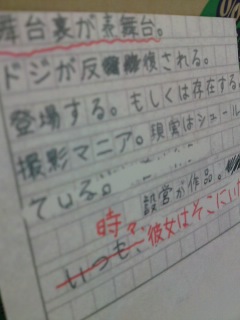 舞台裏が表舞台。
ドジが反復される。
登場する。もしくは存在する。
撮影マニア。現実はシュール
ている。
設営が作品。
時々、彼女はそこにい
いつも、